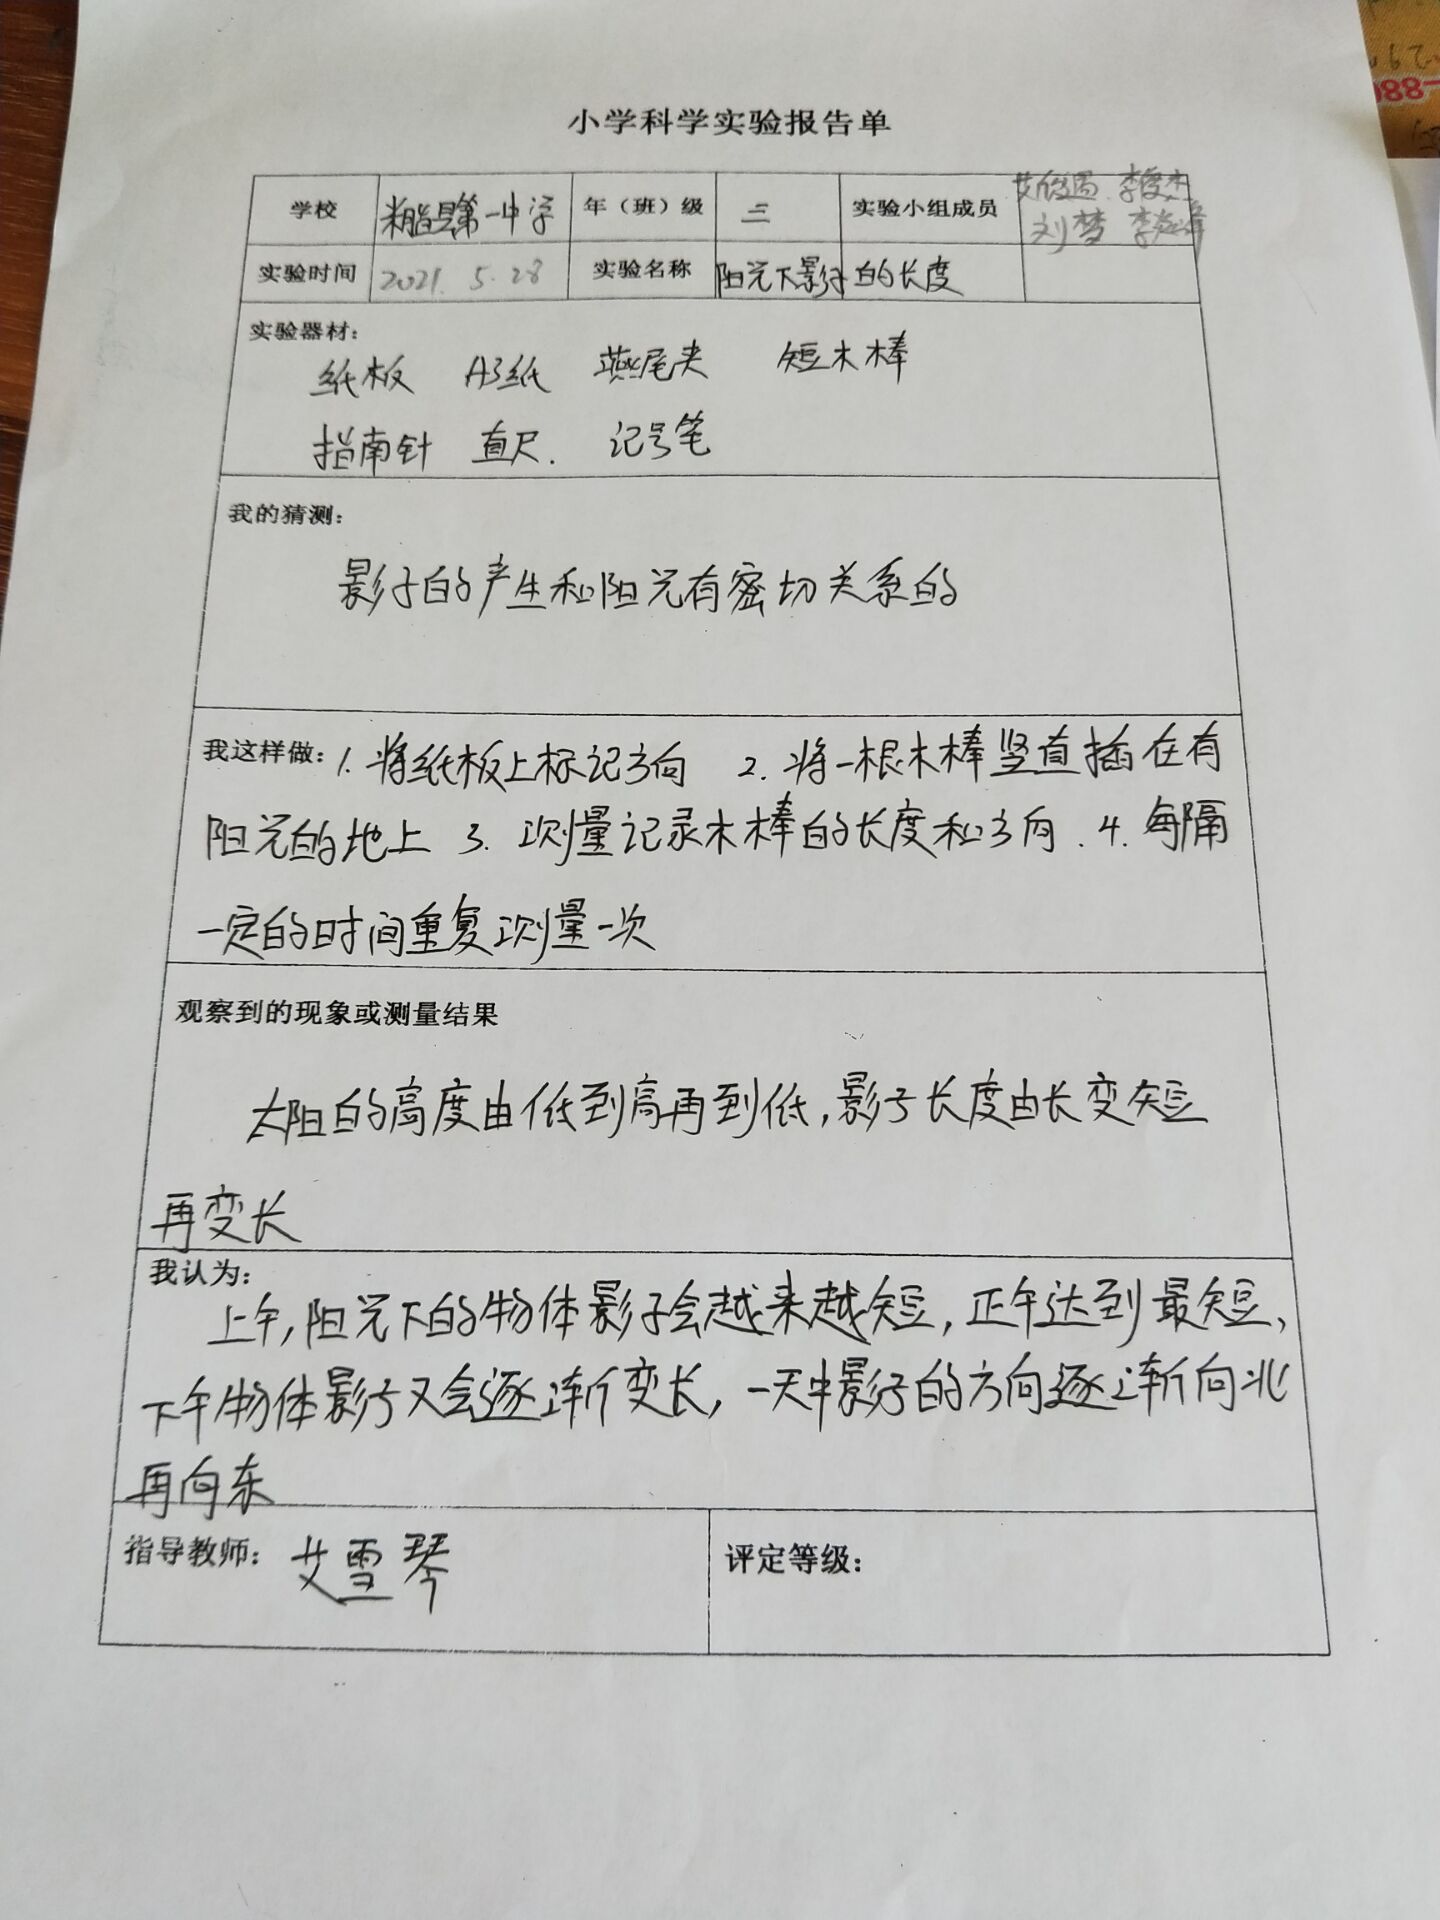 小学科学实验报告单
学校 米脂县第一中学 年（班）级 三 实验小组成员
刘梦
实验时间 2021. 5.28 实验名称 阳光下影子的长度
实验器材：
纸板 A3纸 燕尾夹 短木棒
指南针 直尺. 记号笔
我的猜测：
影子的产生和阳光有密切关系的
我这样做：1. 将纸板上标记方向 2. 将一根木棒竖直插在有
阳光的地上 3. 测量记录木棒的长度和方向. 4. 每隔
一定的时间重复测量一次
观察到的现象或测量结果
太阳的高度由低到高再到低，影子长度由长变短
再变长
我认为：
上午，阳光下的物体影子会越来越短，正午达到最短，
下午物体影子又会逐渐变长，一天中影子的方向逐渐向北
再向东
指导教师： 艾雪琴 评定等级：